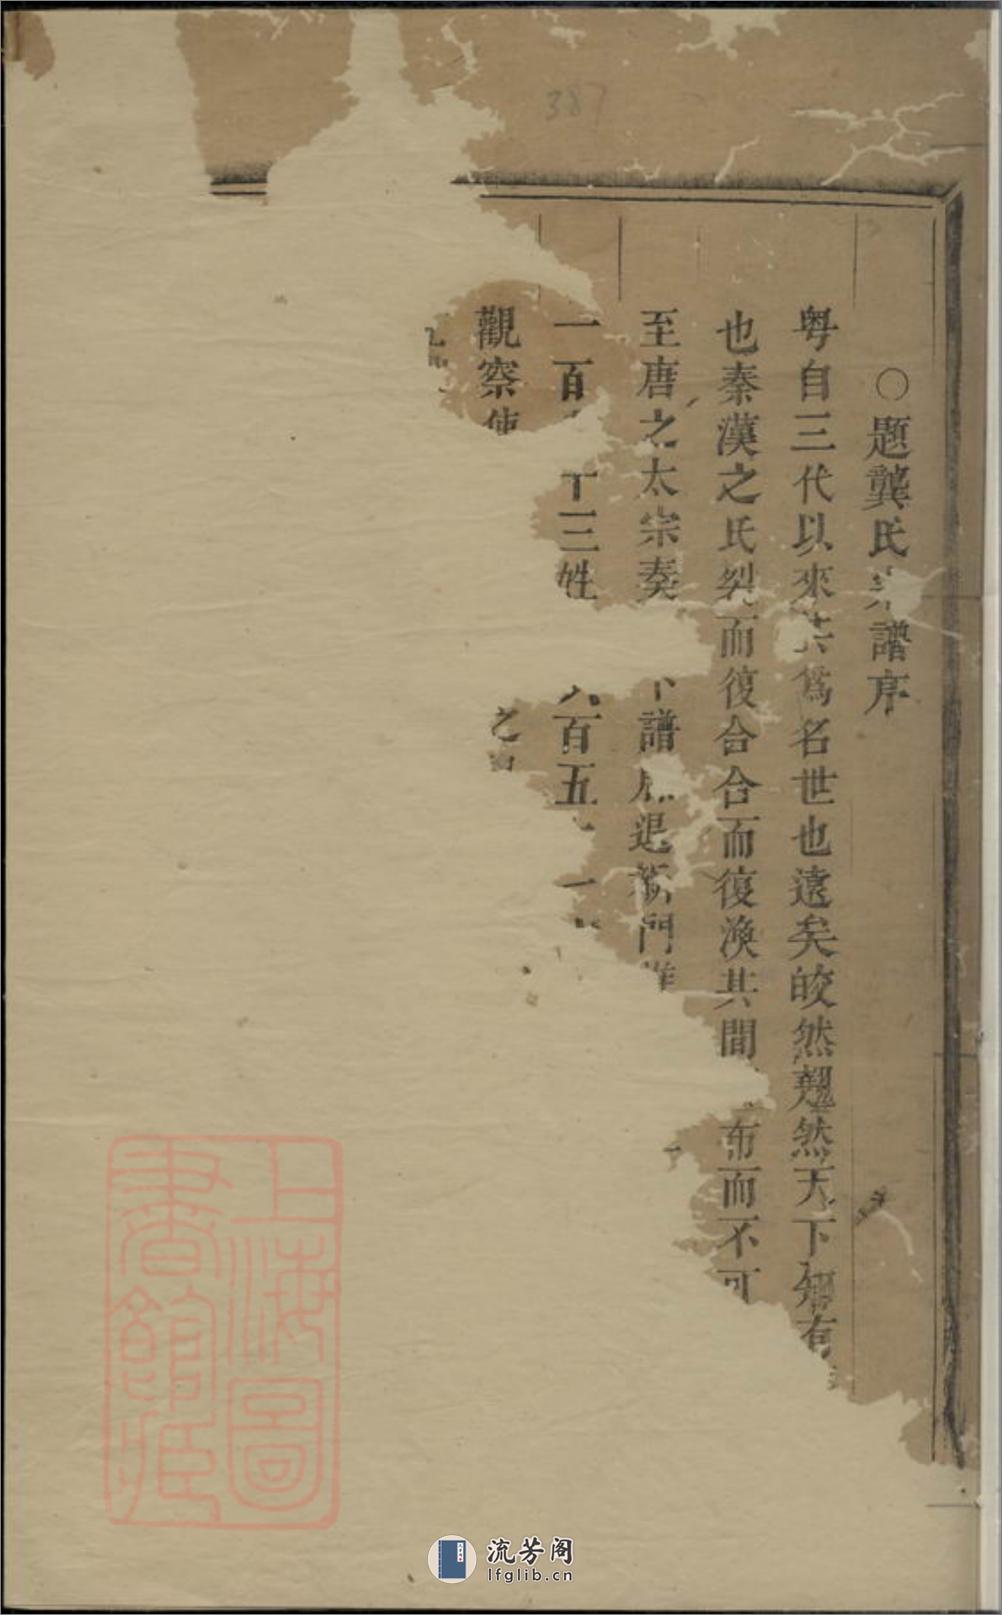 ○題龔氏宗譜序
粤自三代以來其爲名世也遠矣皎然翹然天下知有
也秦漢之氏裂而復合合而復渙其間布而不可
至唐之太宗奏譜退新門
一百十三姓六百五一
觀察使之
上海圖書館藏
387
流芳阁
lfglib.cn